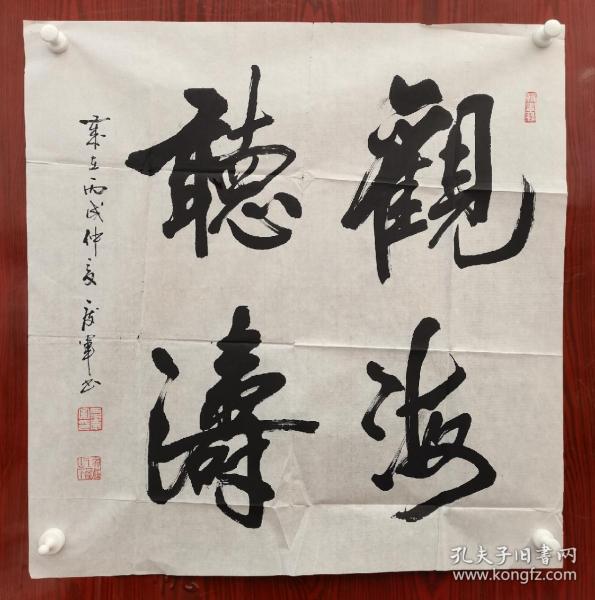 觀海
聽濤
歲在丙戌仲夏 军书
孔夫子旧书网
www.kongfz.com